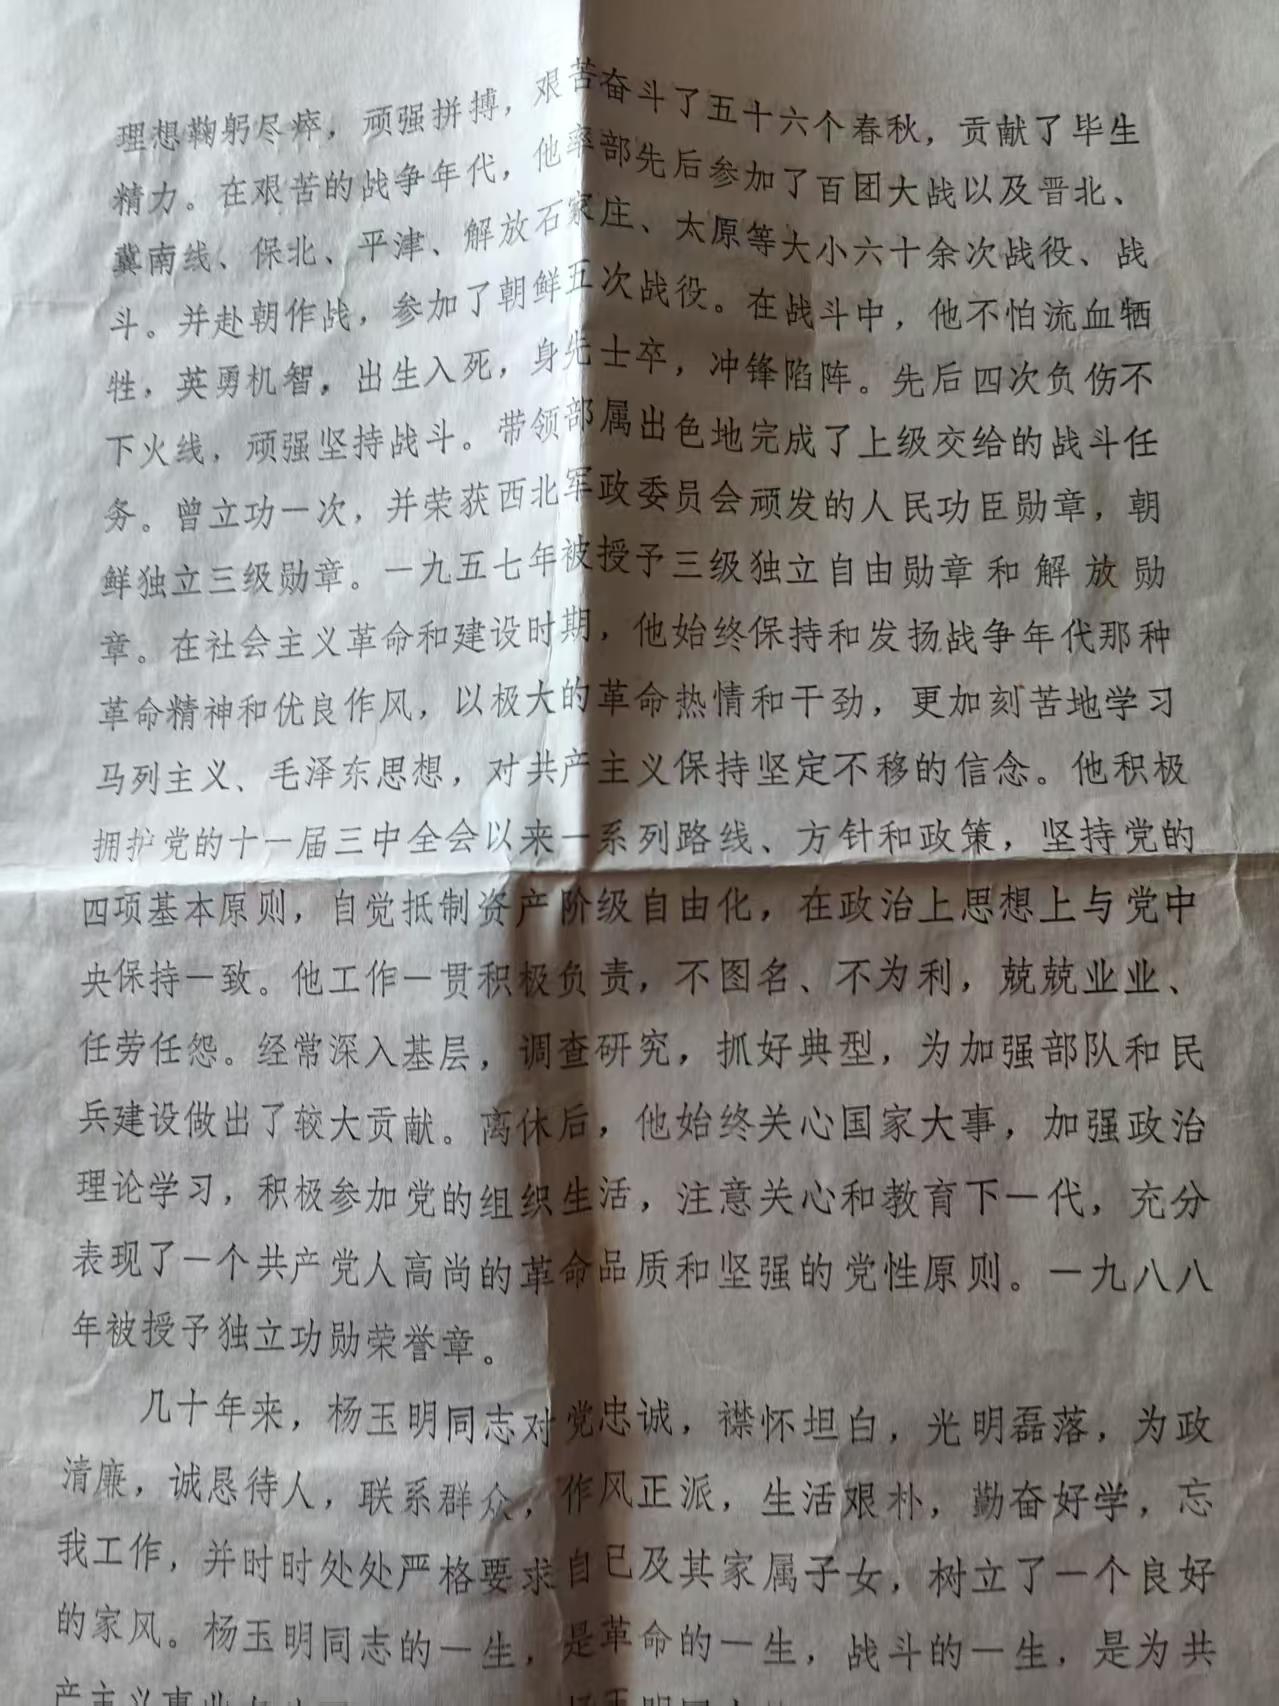 理想鞠躬尽瘁，顽强拼搏，艰苦奋斗了五十六个春秋，贡献了毕生
精力。在艰苦的战争年代，他率部先后参加了百团大战以及晋北、
冀南线、保北、平津、解放石家庄、太原等大小六十余次战役、战
斗。并赴朝作战，参加了朝鲜五次战役。在战斗中，他不怕流血牺
牲，英勇机智，出生入死，身先士卒，冲锋陷阵。先后四次负伤不
下火线，顽强坚持战斗。带领部属出色地完成了上级交给的战斗任
务。曾立功一次，并荣获西北军政委员会顽发的人民功臣勋章，朝
鲜独立三级勋章。一九五七年被授予三级独立自由勋章和解放勋
章。在社会主义革命和建设时期，他始终保持和发扬战争年代那种
革命精神和优良作风，以极大的革命热情和干劲，更加刻苦地学习
马列主义、毛泽东思想，对共产主义保持坚定不移的信念。他积极
拥护党的十一届三中全会以来一系列路线、方针和政策，坚持党的
四项基本原则，自觉抵制资产阶级自由化，在政治上思想上与党中
央保持一致。他工作一贯积极负责，不图名、不为利，兢兢业业、
任劳任怨。经常深入基层，调查研究，抓好典型，为加强部队和民
兵建设做出了较大贡献。离休后，他始终关心国家大事，加强政治
理论学习，积极参加党的组织生活，注意关心和教育下一代，充分
表现了一个共产党人高尚的革命品质和坚强的党性原则。一九八八
年被授予独立功勋荣誉章。
几十年来，杨玉明同志对党忠诚，襟怀坦白，光明磊落，为政
清廉，诚恳待人，联系群众，作风正派，生活艰朴，勤奋好学，忘
我工作，并时时处处严格要求自己及其家属子女，树立了一个良好
的家风。杨玉明同志的一生，是革命的一生，战斗的一生，是为共
产主义事业